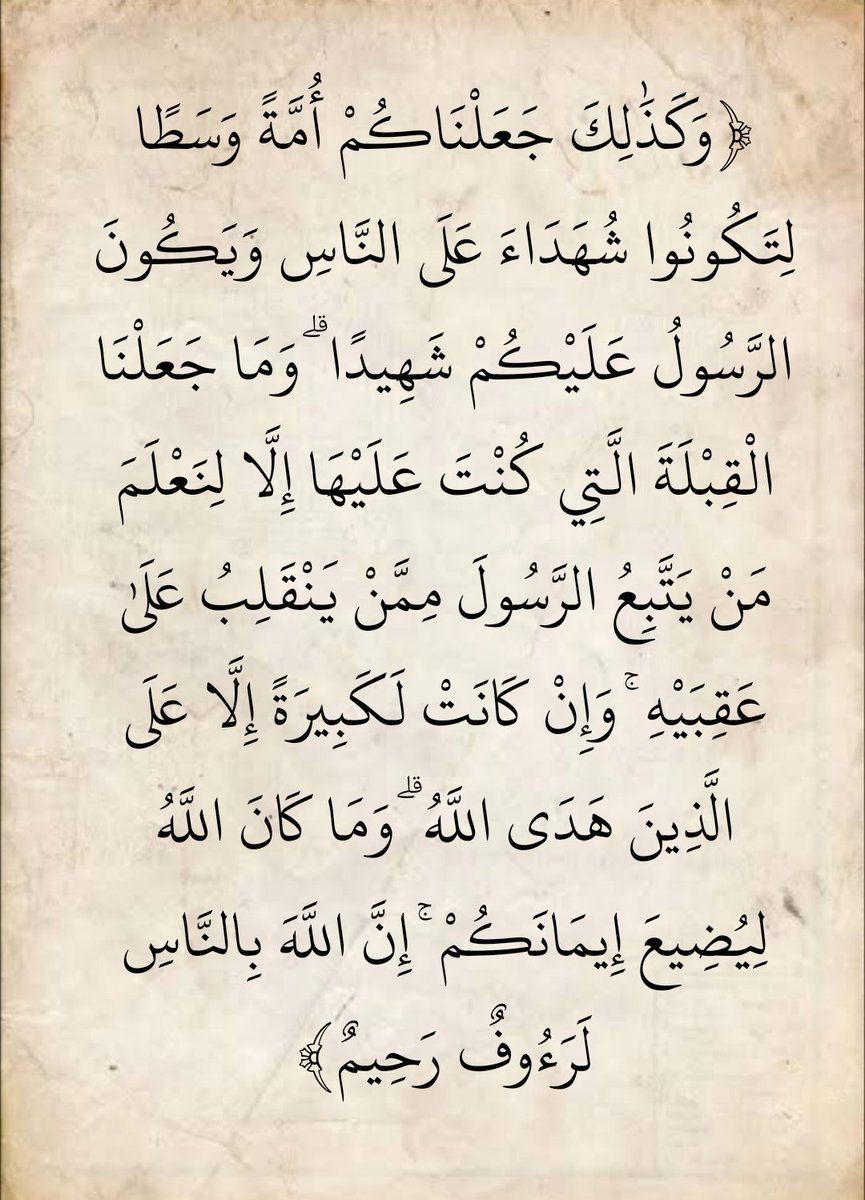 ﴿وَكَذَٰلِكَ جَعَلْنَاكُمْ أُمَّةً وَسَطًا
لِتَكُونُوا شُهَدَاءَ عَلَى النَّاسِ وَيَكُونَ
الرَّسُولُ عَلَيْكُمْ شَهِيدًا ۗ وَمَا جَعَلْنَا
الْقِبْلَةَ الَّتِي كُنْتَ عَلَيْهَا إِلَّا لِنَعْلَمَ
مَنْ يَتَّبِعُ الرَّسُولَ مِمَّنْ يَنْقَلِبُ عَلَىٰ
عَقِبَيْهِ ۚ وَإِنْ كَانَتْ لَكَبِيرَةً إِلَّا عَلَى
الَّذِينَ هَدَى اللَّهُ ۗ وَمَا كَانَ اللَّهُ
لِيُضِيعَ إِيمَانَكُمْ ۚ إِنَّ اللَّهَ بِالنَّاسِ
لَرَءُوفٌ رَحِيمٌ﴾